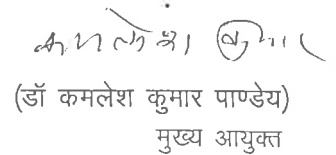 कमलेश कुमार
(डॉ कमलेश कुमार पाण्डेय)
मुख्य आयुक्त